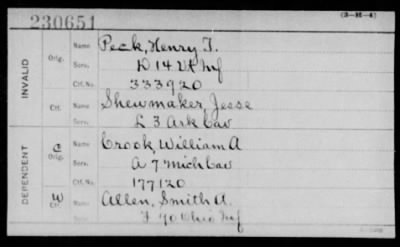 230651
(3-H-4)
INVALID
Orig.
Name Peck, Henry T.
Serv. D 14 Vt Inf
Ctf. No. 333920
Ctf. Name Shewmaker, Jesse
Serv. L 3 Ark Cav
DEPENDENT
C
Orig.
Name Crook, William A
Serv. A 7 Mich Cav
Ctf. No. 177120
W
Ctf.
Name Allen, Smith A.
Serv. F 70 Ohio Inf